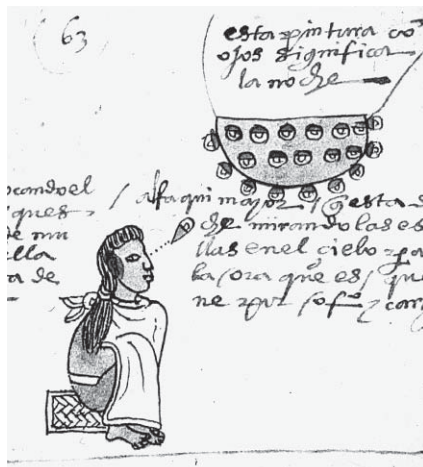 63
esta pintura cõ
ojos significa
la noche
ocando el
ques
de mu
ella
ra de
/ alfaqui mayor / q̃ esta de
che mirando las es
llas en el cielo
la ora que es / que
ne por ofiº y